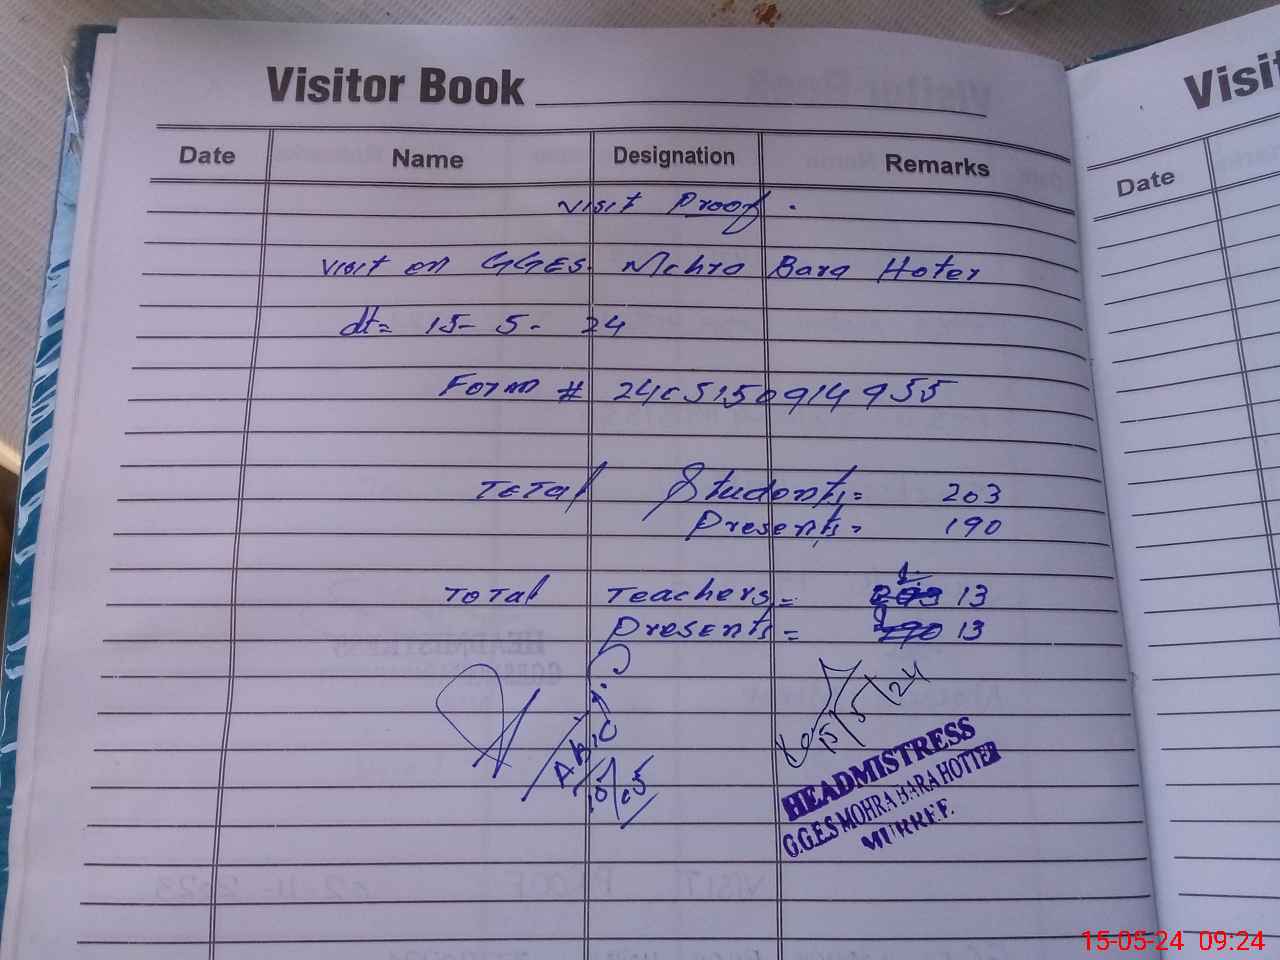 Visitor Book
Visit
Date Name Designation Remarks
Date
visit Proof.
visit on GGES. Mohra Bara Hoter
dt= 15- 5- 24
Form # 24c5150914955
Total Students= 203
Presents= 190
Total Teachers= 203 13
Presents= 190 13
15/5/24
HEADMISTRESS
G.G.E.S MOHRA BARA HOTTER
MURREE.
15-05-24 09:24